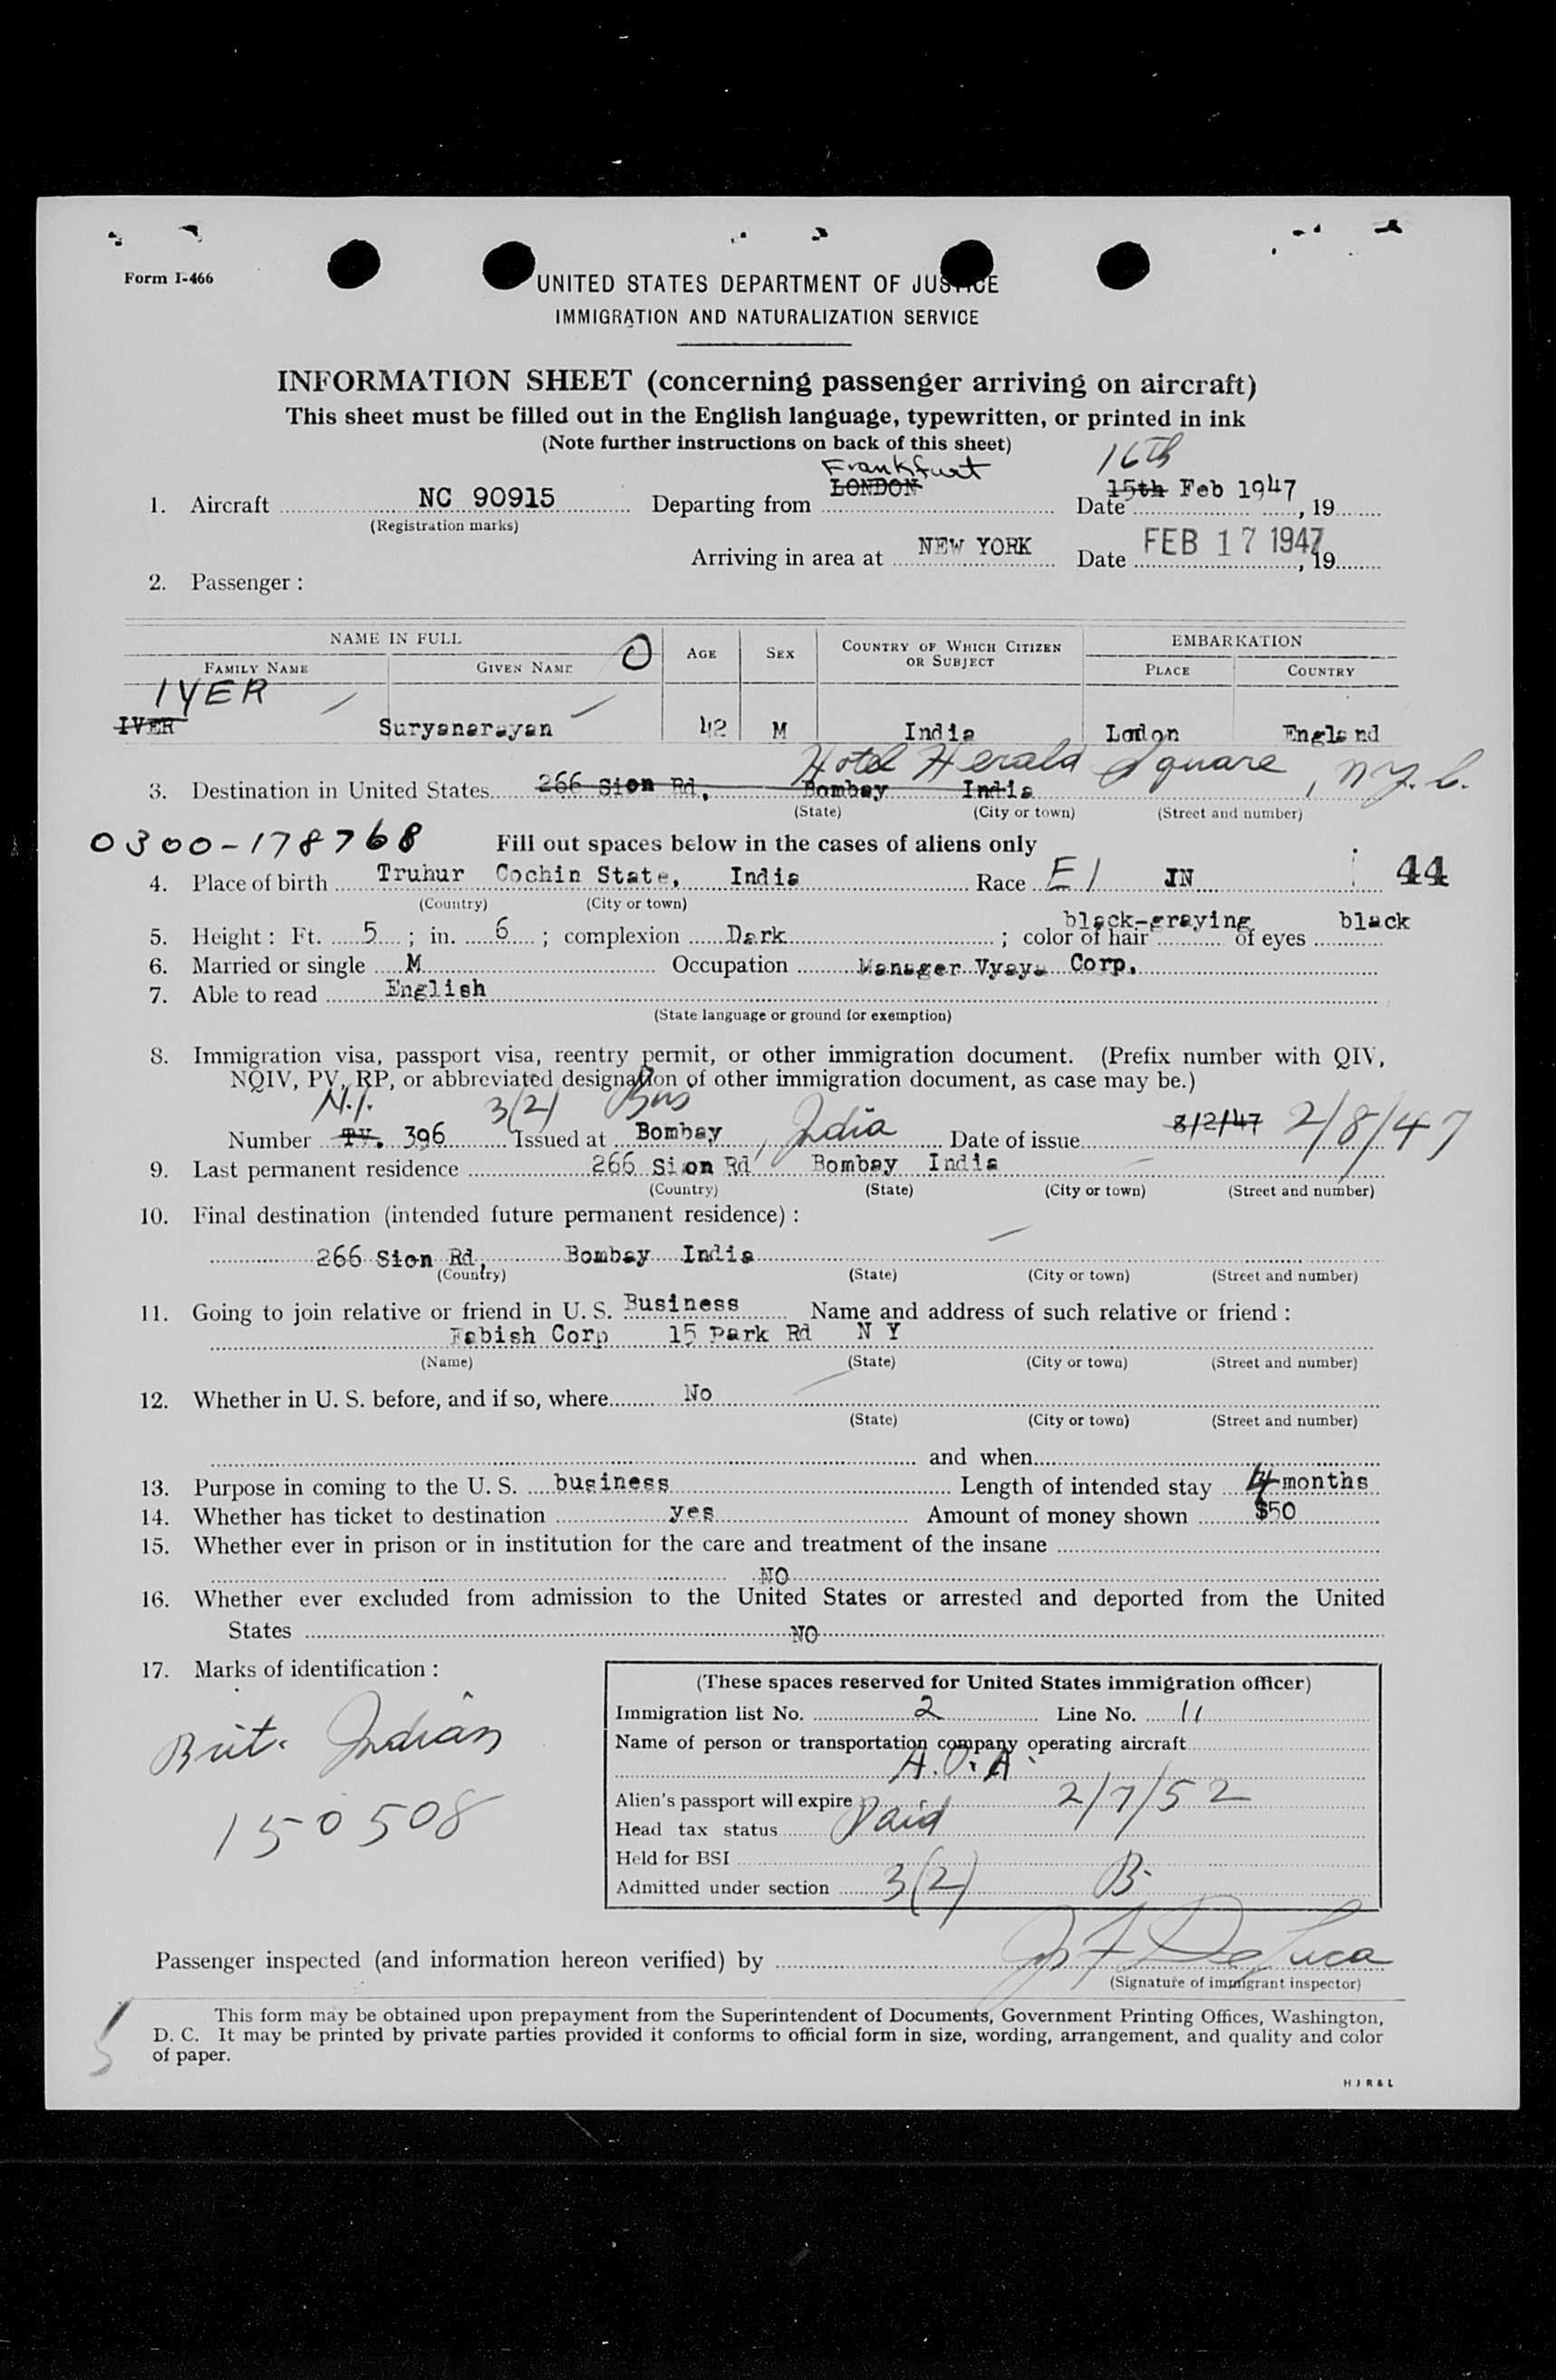 Form I-466
UNITED STATES DEPARTMENT OF JUSTICE
IMMIGRATION AND NATURALIZATION SERVICE
INFORMATION SHEET (concerning passenger arriving on aircraft)
This sheet must be filled out in the English language, typewritten, or printed in ink
(Note further instructions on back of this sheet)
Frankfurt 16th
1. Aircraft NC 90915 Departing from LONDON Date 15th Feb 1947, 19
(Registration marks)
Arriving in area at NEW YORK Date FEB 17 1947, 19
2. Passenger :
NAME IN FULL O AGE SEX COUNTRY OF WHICH CITIZEN OR SUBJECT EMBARKATION
FAMILY NAME GIVEN NAME PLACE COUNTRY
IYER
IVER Suryanarayan 42 M India Lodon England
Hotel Herald Square, N.Y.C.
3. Destination in United States 266 Sion Rd, Bombay India
(State) (City or town) (Street and number)
0300-178768 Fill out spaces below in the cases of aliens only
4. Place of birth Truhur Cochin State, India Race E I IN 44
(Country) (City or town)
5. Height : Ft. 5 ; in. 6 ; complexion Dark ; color of hair black-graying of eyes black
6. Married or single M Occupation Manager Vyaya Corp.
7. Able to read English
(State language or ground for exemption)
8. Immigration visa, passport visa, reentry permit, or other immigration document. (Prefix number with QIV,
NQIV, PV, RP, or abbreviated designation of other immigration document, as case may be.)
N.I. 3(2) Bus
Number 396 Issued at Bombay, India Date of issue 8/2/47 2/8/47
9. Last permanent residence 266 Sion Rd Bombay India
(Country) (State) (City or town) (Street and number)
10. Final destination (intended future permanent residence) :
266 Sion Rd, Bombay India
(Country) (State) (City or town) (Street and number)
11. Going to join relative or friend in U. S. Business Name and address of such relative or friend :
Fabish Corp 15 Park Rd N Y
(Name) (State) (City or town) (Street and number)
12. Whether in U. S. before, and if so, where No
(State) (City or town) (Street and number)
and when
13. Purpose in coming to the U. S. business Length of intended stay 4 months
14. Whether has ticket to destination yes Amount of money shown $50
15. Whether ever in prison or in institution for the care and treatment of the insane
NO
16. Whether ever excluded from admission to the United States or arrested and deported from the United
States NO
17. Marks of identification :
Brit. Indian
150508
(These spaces reserved for United States immigration officer)
Immigration list No. 2 Line No. 11
Name of person or transportation company operating aircraft
A.O.A.
Alien's passport will expire 2/7/52
Head tax status Paid
Held for BSI
Admitted under section 3(2) B
Passenger inspected (and information hereon verified) by DeLuca
(Signature of immigrant inspector)
This form may be obtained upon prepayment from the Superintendent of Documents, Government Printing Offices, Washington,
D. C. It may be printed by private parties provided it conforms to official form in size, wording, arrangement, and quality and color
of paper.
H J R & L